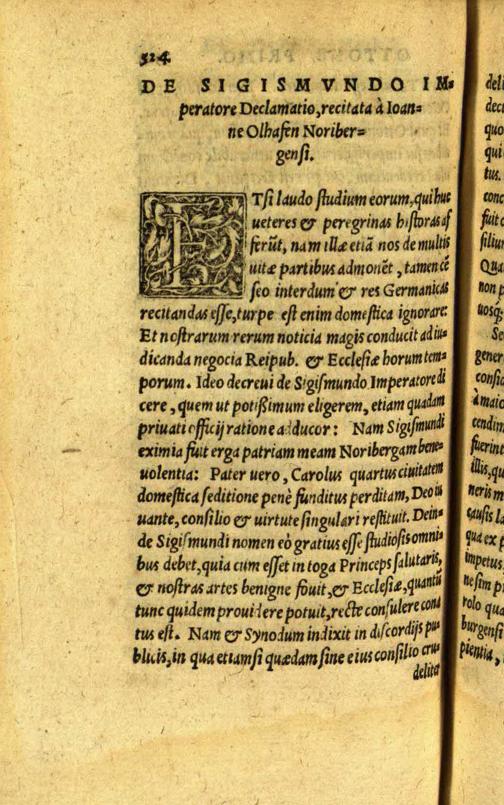 524
DE SIGISMVNDO IM-
peratore Declamatio, recitata à Ioan-
ne Olhafen Noriber-
gensi.
ETsi laudo studium eorum, qui huc
ueteres & peregrinas historas af
ferũt, nam illæ etiã nos de multis
uitæ partibus admonẽt, tamen cẽ
seo interdum & res Germanicas
recitandas esse, turpe est enim domestica ignorare:
Et nostrarum rerum noticia magis conducit ad iu-
dicanda negocia Reipub. & Ecclesiæ horum tem-
porum. Ideo decreui de Sigismundo Imperatore di
cere, quem ut potißimum eligerem, etiam quadam
priuati officij ratione adducor: Nam Sigismundi
eximia fuit erga patriam meam Noribergam bene-
uolentia: Pater uero, Carolus quartus ciuitatem
domestica seditione penè funditus perditam, Deo iu
uante, consilio & uirtute singulari restituit. Dein-
de Sigismundi nomen eò gratius esse studiosis omni-
bus debet, quia cum esset in toga Princeps salutaris,
& nostras artes benigne fouit, & Ecclesiæ, quantũ
tunc quidem prouidere potuit, recte consulere cona
tus est. Nam & Synodum indixit in discordijs pu-
blicis, in qua etiamsi quædam sine eius consilio cru-
delita
deli
decr
quo
qui
tus.
conc
fuit c
silium
Qua
non p
uosq;
Se
gener
consi
à maio
cendim
fuerint
illis, qu
neris m
causis la
qua ex p
impetus
ne sim p
rolo qua
burgensi
pientia,